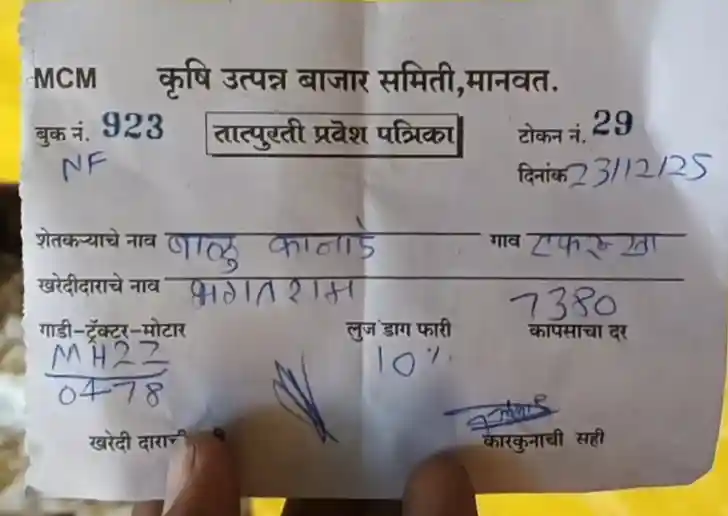 MCM कृषि उत्पन्न बाजार समिती,मानवत.
बुक नं. 923 तात्पुरती प्रवेश पत्रिका टोकन नं. 29
NF दिनांक 23/12/25
शेतकऱ्याचे नाव बाळु कानाडे गाव
खरेदीदाराचे नाव भगतराम
7380
गाडी-ट्रॅक्टर-मोटार लुज डाग फारी कापसाचा दर
MH22 10%
0478
खरेदी दाराची कारकुनाची सही